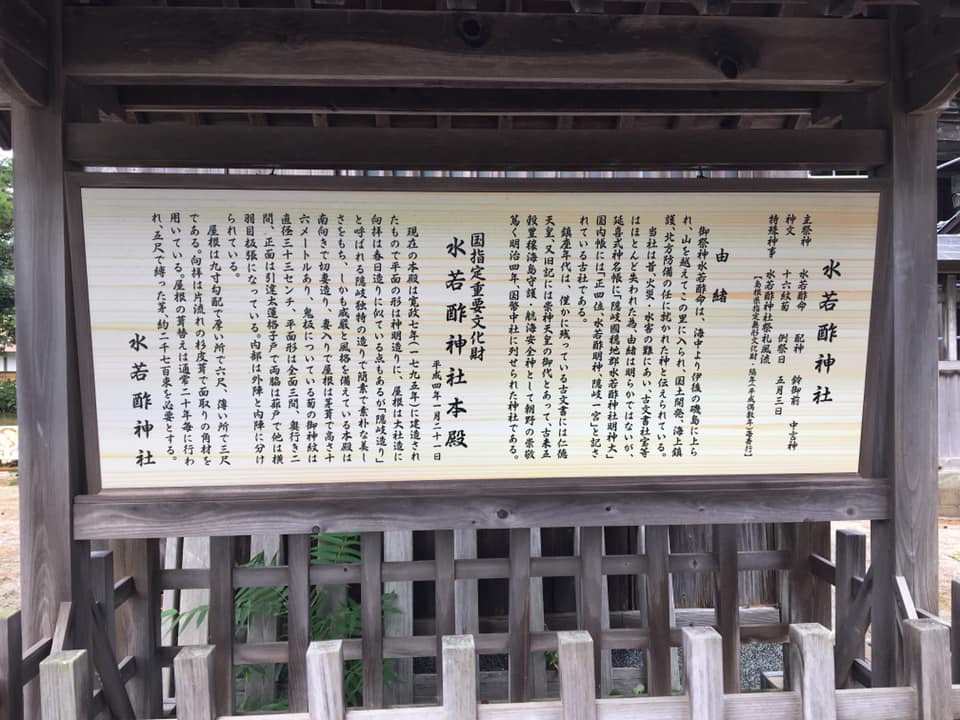 水若酢神社
主祭神　水若酢命　配神　鈴御前　中言神
神文　十六紋菊　例祭日　五月三日
特殊神事　水若酢神社祭礼風流
【島根県指定無形文化財・隔年（平成偶数年）毎斉行】
由緒
御祭神水若酢命は、海中より伊後の磯島に上ら
れ、山を越えてこの里に入られ、国土開発、海上鎮
護、北方防備の任に就かれた神と伝えられている。
当社は昔、火災、水害の難にあい、古文書社宝等
はほとんど失われた為、由緒は明らかではないが、
延喜式神名帳には「隠岐國穏地郡水若酢神社明神大」
国内帳には「正四位、水若酢明神、隠岐一宮」と記さ
れている古社である。
鎮座年代は、僅かに残っている古文書には仁徳
天皇、又旧記には崇神天皇の御代とあって、古来五
穀豊穣海島守護、航海安全神として朝野の崇敬
篤く明治四年、国幣中社に列せられた神社である。
国指定重要文化財
水若酢神社本殿
平成四年一月二十一日
現在の本殿は寛政七年（一七九五年）に建造され
たもので平面の形は神明造りに、屋根は大社造に
向拝は春日造りに似ている点もあるが「隠岐造り」
と呼ばれる隠岐島独特の造りで簡素で素朴な美し
さをもち、しかも威厳と風格を備えている本殿は
南向きで切妻造り、妻入りで屋根は茅葺で高さ十
六メートルあり、鬼板についている菊の御神紋は
直径三十三センチ、平面形は全面三間、奥行き二
間、正面は引違太蓮格子戸で両脇は蔀戸で他は横
羽目板張になっている。内部は外陣と内陣に分け
られている。
屋根は九寸勾配で厚い所で六尺、薄い所で三尺
である。向拝は片流れの杉皮葺で面取りの角材を
用いている。屋根の葺替えは通常二十年毎に行わ
れ、五尺で縛った茅、約二千七百束を必要とする。
水若酢神社